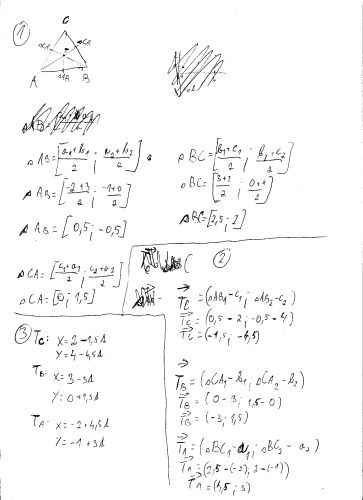 ①
C
SCA
A
SAB
B
SAB = [a₁+b₁/2 ; a₂+b₂/2]
SAB = [-2+3/2 ; -1+0/2]
SAB = [0,5 ; -0,5]
SBC = [b₁+c₁/2 ; b₂+c₂/2]
SBC = [3+2/2 ; 0+4/2]
SBC = [2,5 ; 2]
SCA = [c₁+a₁/2 ; c₂+a₂/2]
SCA = [0 ; 1,5]
②
T⃗c = (SAB₁-c₁ ; SAB₂-c₂)
T⃗c = (0,5-2 ; -0,5-4)
T⃗c = (-1,5 ; -4,5)
T⃗B = (SCA₁-b₁ ; SCA₂-b₂)
T⃗B = (0-3 ; 1,5-0)
T⃗B = (-3 ; 1,5)
T⃗A = (SBC₁-a₁ ; SBC₂-a₂)
T⃗A = (2,5-(-2) ; 2-(-1))
T⃗A = (4,5 ; 3)
③
Tc: X = 2-1,5s
Y = 4-4,5s
TB: X = 3-3s
Y = 0+1,5s
TA: X = -2+4,5s
Y = -1+3s